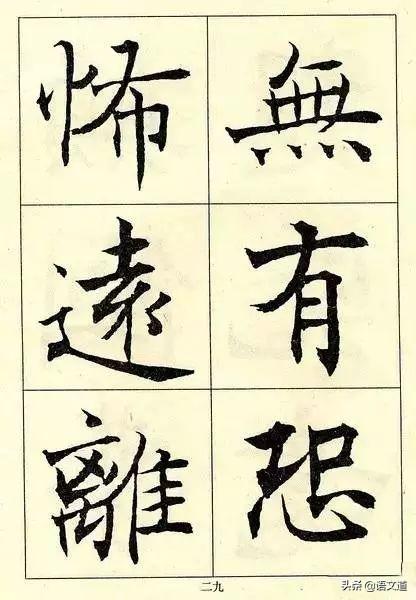 無有恐
怖遠離
二九
头条@语文道